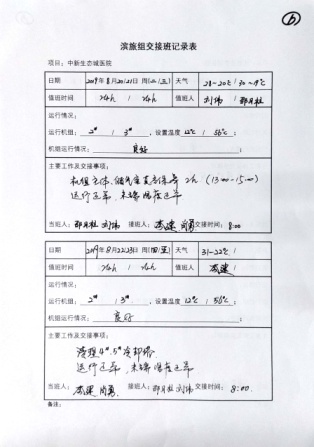 b
滨旅组交接班记录表
项目：中新生态城医院
日期 2019年8月20/21日 周(二/三) 天气 28~20℃ / 30~19℃
值班时间 24h / 24h 值班人 刘伟 / 邵月桂
运行情况：
运行机组： 2# / 3# ，设置温度 12℃ / 56℃ ；
机组运行情况： 良好 ；
主要工作及交接事项：
2h (13:00-15:00)
运行正常，末端温度正常
当班人：邵月桂 刘伟 接班人：李建 交接时间：8:00
日期 2019年8月22/23日 周(四/五) 天气 31~22℃ /
值班时间 24h / 24h 值班人 李建 /
运行情况：
运行机组： 2# / 3# ，设置温度 12℃ / 56℃ ；
机组运行情况： 良好 ；
主要工作及交接事项：
清理4#.5#冷却塔
运行正常，末端温度正常
当班人：李建 接班人：邵月桂 刘伟 交接时间：8:00
备注：